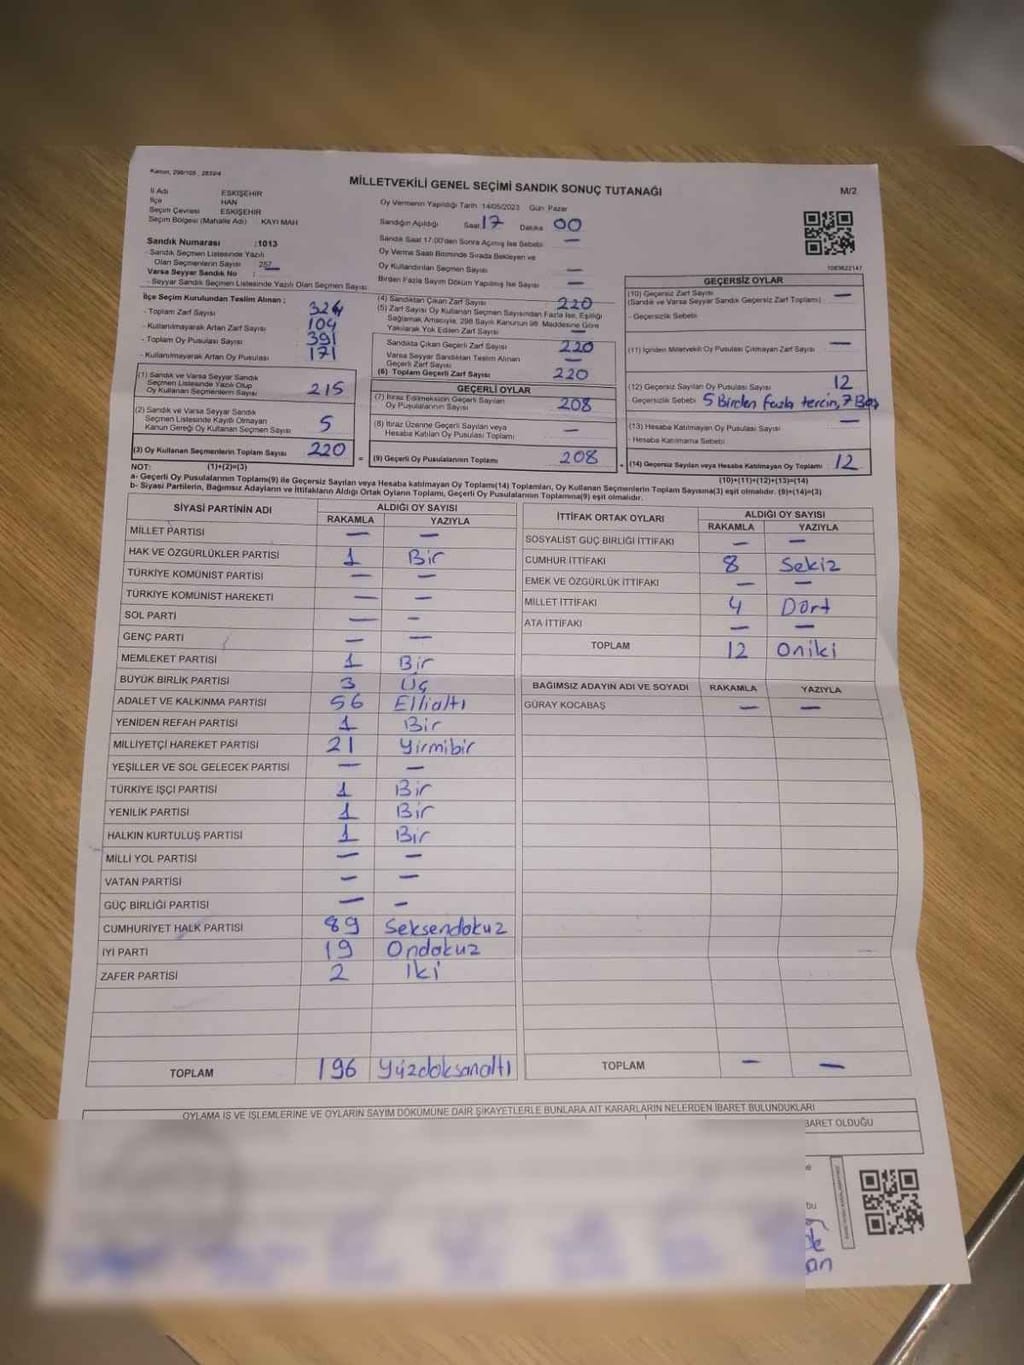 Kanun, 298/105 _ 2839/4
MİLLETVEKİLİ GENEL SEÇİMİ SANDIK SONUÇ TUTANAĞI
M/2
İl Adı ESKİŞEHİR
İlçe HAN
Seçim Çevresi ESKİŞEHİR
Seçim Bölgesi (Mahalle Adı) KAYI MAH
Oy Vermenin Yapıldığı Tarih 14/05/2023 Gün Pazar
Sandığın Açıldığı Saat 17 Dakika 00
Sandık Saat 17:00'den Sonra Açılmış İse Sebebi —
Oy Verme Saati Bitiminde Sırada Bekleyen ve
Oy Kullandırılan Seçmen Sayısı —
Birden Fazla Sayım Döküm Yapılmış İse Sayısı —
Sandık Numarası :1013
- Sandık Seçmen Listesinde Yazılı
Olan Seçmenlerin Sayısı 257
Varsa Seyyar Sandık No :
- Seyyar Sandık Seçmen Listesinde Yazılı Olan Seçmen Sayısı
1083622147
İlçe Seçim Kurulundan Teslim Alınan ;
- Toplam Zarf Sayısı 324
- Kullanılmayarak Artan Zarf Sayısı 104
- Toplam Oy Pusulası Sayısı 391
- Kullanılmayarak Artan Oy Pusulası 171
(1) Sandık ve Varsa Seyyar Sandık
Seçmen Listesinde Yazılı Olup
Oy Kullanan Seçmenlerin Sayısı 215
(2) Sandık ve Varsa Seyyar Sandık
Seçmen Listesinde Kayıtlı Olmayan
Kanun Gereği Oy Kullanan Seçmen Sayısı 5
(3) Oy Kullanan Seçmenlerin Toplam Sayısı 220
(4) Sandıktan Çıkan Zarf Sayısı 220
(5) Zarf Sayısı Oy Kullanan Seçmen Sayısından Fazla İse, Eşitliği
Sağlamak Amacıyla, 298 Sayılı Kanunun 98. Maddesine Göre
Yakılarak Yok Edilen Zarf Sayısı —
Sandıkta Çıkan Geçerli Zarf Sayısı 220
Varsa Seyyar Sandıktan Teslim Alınan
Geçerli Zarf Sayısı —
(6) Toplam Geçerli Zarf Sayısı 220
GEÇERLİ OYLAR
(7) İtiraz Edilmeksizin Geçerli Sayılan
Oy Pusulalarının Sayısı 208
(8) İtiraz Üzerine Geçerli Sayılan veya
Hesaba Katılan Oy Pusulası Toplamı —
= (9) Geçerli Oy Pusulalarının Toplamı 208
GEÇERSİZ OYLAR
(10) Geçersiz Zarf Sayısı —
(Sandık ve Varsa Seyyar Sandık Geçersiz Zarf Toplamı)
- Geçersizlik Sebebi
(11) İçinden Milletvekili Oy Pusulası Çıkmayan Zarf Sayısı —
(12) Geçersiz Sayılan Oy Pusulası Sayısı 12
- Geçersizlik Sebebi 5 Birden fazla tercin, 7 Boş
(13) Hesaba Katılmayan Oy Pusulası Sayısı —
- Hesaba Katılmama Sebebi
+ (14) Geçersiz Sayılan veya Hesaba Katılmayan Oy Toplamı 12
NOT: (1)+(2)=(3)
(10)+(11)+(12)+(13)=(14)
a- Geçerli Oy Pusulalarının Toplamı(9) ile Geçersiz Sayılan veya Hesaba Katılmayan Oy Pusulası(14) Toplamları, Oy Kullanan Seçmenlerin Toplam Sayısına(3) eşit olmalıdır. (9)+(14)=(3)
b- Siyasi Partilerin, Bağımsız Adayların ve İttifakların Aldığı Ortak Oyların Toplamı, Geçerli Oy Pusulalarının Toplamına(9) eşit olmalıdır.
SİYASİ PARTİNİN ADI ALDIĞI OY SAYISI
RAKAMLA YAZIYLA
MİLLET PARTİSİ — —
HAK VE ÖZGÜRLÜKLER PARTİSİ 1 Bir
TÜRKİYE KOMÜNİST PARTİSİ — —
TÜRKİYE KOMÜNİST HAREKETİ — —
SOL PARTİ — -
GENÇ PARTİ — —
MEMLEKET PARTİSİ 1 Bir
BÜYÜK BİRLİK PARTİSİ 3 Üç
ADALET VE KALKINMA PARTİSİ 56 Ellialtı
YENİDEN REFAH PARTİSİ 1 Bir
MİLLİYETÇİ HAREKET PARTİSİ 21 Yirmibir
YEŞİLLER VE SOL GELECEK PARTİSİ — —
TÜRKİYE İŞÇİ PARTİSİ 1 Bir
YENİLİK PARTİSİ 1 Bir
HALKIN KURTULUŞ PARTİSİ 1 Bir
MİLLİ YOL PARTİSİ — —
VATAN PARTİSİ — —
GÜÇ BİRLİĞİ PARTİSİ — —
CUMHURİYET HALK PARTİSİ 89 Seksendokuz
İYİ PARTİ 19 Ondokuz
ZAFER PARTİSİ 2 İki
TOPLAM 196 Yüzdoksanaltı
İTTİFAK ORTAK OYLARI ALDIĞI OY SAYISI
RAKAMLA YAZIYLA
SOSYALİST GÜÇ BİRLİĞİ İTTİFAKI — —
CUMHUR İTTİFAKI 8 Sekiz
EMEK VE ÖZGÜRLÜK İTTİFAKI — —
MİLLET İTTİFAKI 4 Dört
ATA İTTİFAKI — —
TOPLAM 12 Oniki
BAĞIMSIZ ADAYIN ADI VE SOYADI RAKAMLA YAZIYLA
GÜRAY KOCABAŞ — —
TOPLAM — —
OYLAMA İŞ VE İŞLEMLERİNE VE OYLARIN SAYIM DÖKÜMÜNE DAİR ŞİKAYETLERLE BUNLARA AİT KARARLARIN NELERDEN İBARET BULUNDUKLARI
BARET OLDUĞU